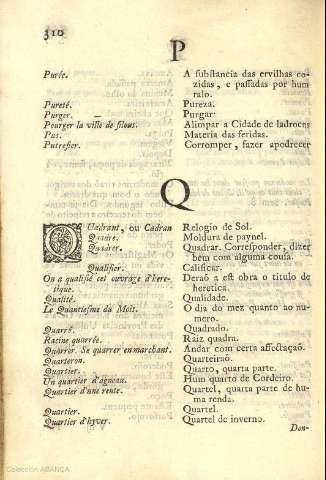 310
P
Purée. A substancia das ervilhas co-
zidas, e passadas por hum
ralo.
Pureté. Pureza.
Purger. Purgar
Pourger la ville de filous. Alimpar a Cidade de ladroens
Pus. Materia das feridas.
Putrefier. Corromper, fazer apodrecer
Q
Quadrant, ou Cadran Relogio de Sol.
Quadre. Moldura de paynel.
Quadrer. Quadrar. Corresponder, dizer
bem com alguma cousa.
Qualifier. Calificar.
On a qualifié cet ouvrage d'here- Deraõ a est obra o titulo de
tique. heretica.
Qualité. Qualidade.
Le Quantiesme du Mois. O dia do mez quanto ao nu-
mero.
Quarré. Quadrado.
Racine quarrée. Raiz quadra.
Quarrer. Se quarrer en marchant. Andar com certa affectaçaõ.
Quarteron. Quarteiraõ.
Quartier. Quarto, quarta parte.
Un quartier d'agneau. Hum quarto de Cordeiro.
Quartier d'une rente. Quartel, quarta parte de hu-
ma renda.
Quartier. Quartel.
Quartier d'hyver. Quartel de inverno.
Don-
Colección ABANCA